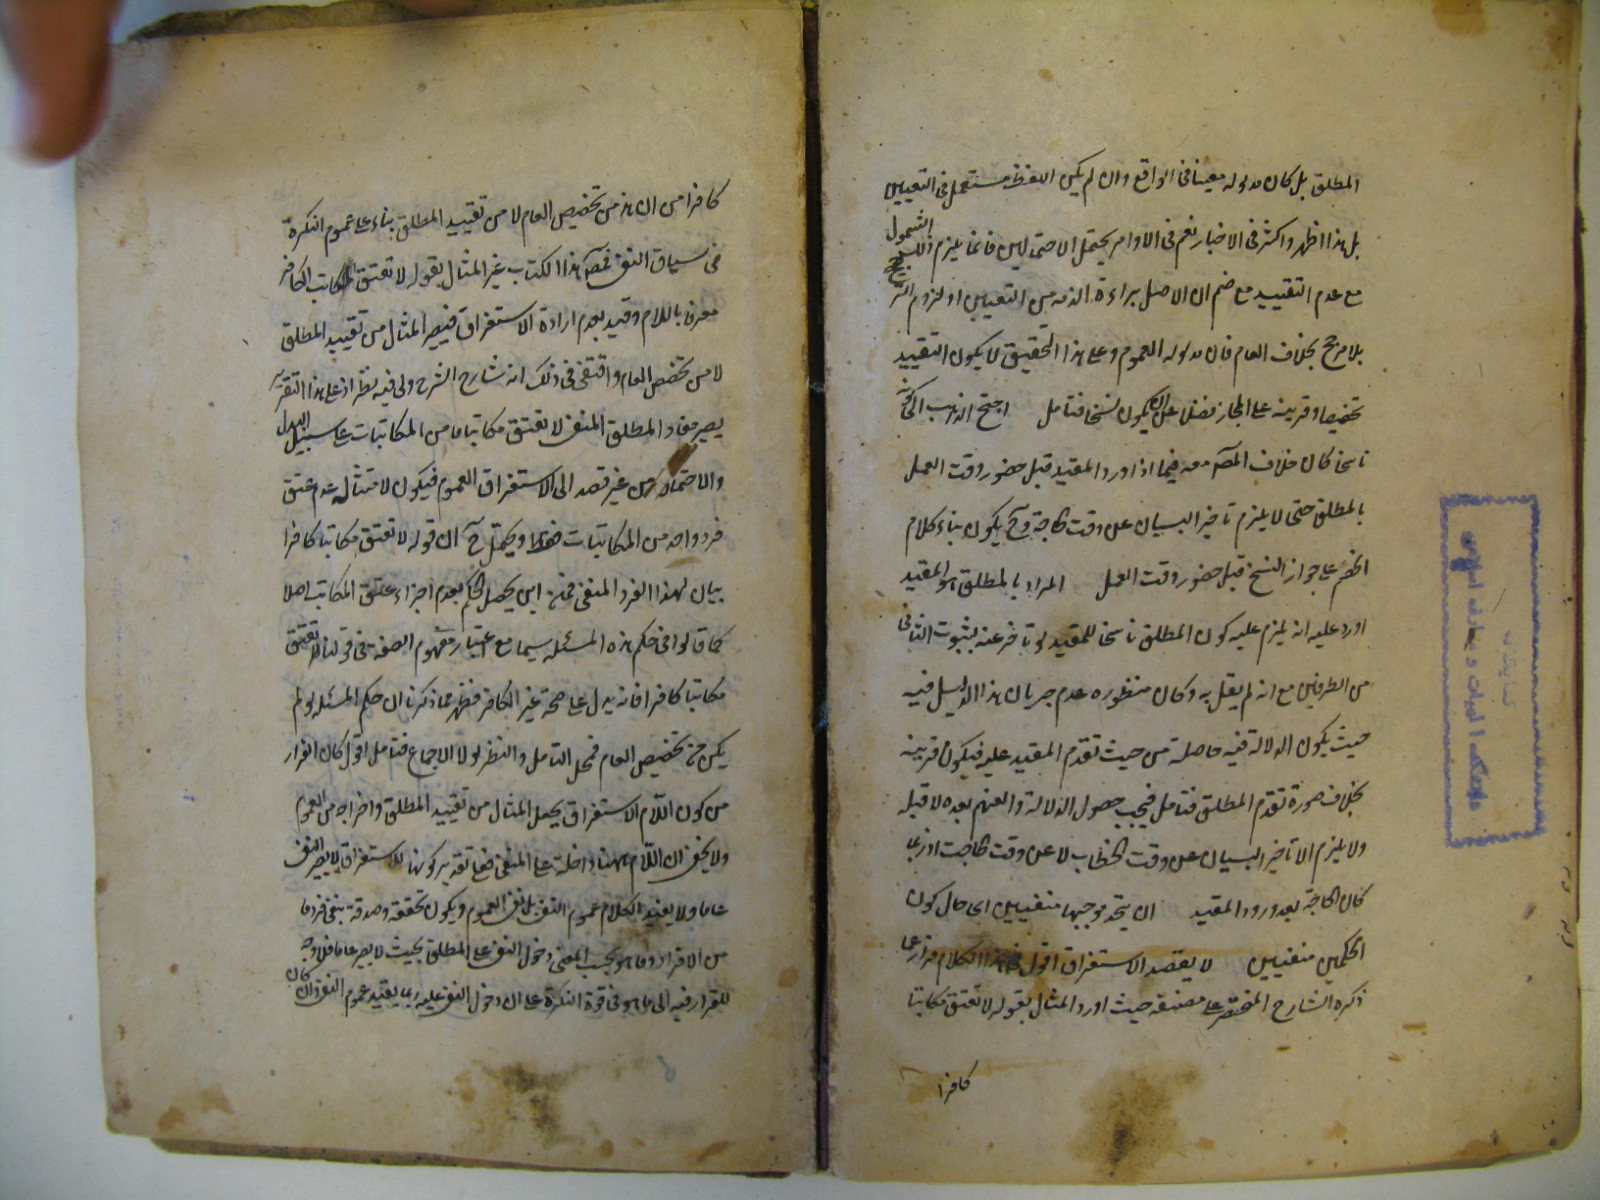 المطلق بل كان مدلوله معينا فى الواقع وان لم يكن اللفظ مستعمل فى التعيين
بل هذا اظهر واكثر فى الاخبار نعم فى الاوامر يحتمل الاحتمالين فانما يلزم ذلك الشمول
مع عدم التقييد مع ضم ان الاصل براءة الذمه من التعيين او لزوم
بلا مرجح بخلاف العام فان مدلوله العموم وعلى هذا التحقيق لا يكون التقييد
تخصيصا وقرينه على المجاز فضلا عن ان يكون نسخا فتامل احتج الذاهب الى كونه
ناسخا كان خلاف المصَ معه فيما اذا ورد المقيد قبل حضور وقت العمل
بالمطلق حتى لا يلزم تاخير البيان عن وقت الحاجة وح يكون بناء كلام
الخصم على جواز النسخ قبل حضور وقت العمل المراد بالمطلق هو المقيد
اورد عليه انه يلزم عليه كون المطلق ناسخا للمقيد لو تاخر عنه لثبوت التنافى
من الطرفين مع انه لم يقل به وكان منظوره عدم جريان هذا الدليل فيه
حيث يكون الدلالة فيه حاصلة من حيث تقدم المقيد عليه فيكون قرينة
بخلاف صورة تقدم المطلق فتامل فيجب حصول الدلالة والفهم بعده لا قبله
ولا يلزم الا تاخير البيان عن وقت الخطاب لا عن وقت الحاجت اذ ربما
كان الحاجة بعد ورود المقيد ان يتحد موجبها منفيين اى حال كون
الحكمين منفيين لا يقصد الاستغراق اقول هذا الكلام فرار عما
ذكره الشارح المختصر على مصنفه حيث اورد المثال بقوله لا تعتق مكاتبا
كافرا
كافرا من ان هذ من تخصيص العام لا من تقييد المطلق بناء على عموم النكرة
فى سياق النفى فمصَ هذا الكتاب غير المثال بقوله لا تعتق المكاتب الكافر
معرفا باللام وقيد بعدم ارادة الاستغراق فيصير المثال من تقييد المطلق
لا من تخصيص العام واقتفى فى ذلك اثر شارح الشرح ولى فيه نظر اذ على هذا التقرير
يصير مفاد المطلق المنفى لا تعتق مكاتبا ما من المكاتبات على سبيل البدل
والاحتمال من غير قصد الى الاستغراق العموم فيكون الامتثال عدم عتق
فرد واحد من المكاتبات فقط ويحتمل ح ان قوله لا تعتق مكاتبا كافرا
بيان لهذا الفرد المنفى فمن اين يحصل الحكم بعدم اجزاء عتق المكاتب اصلا
كما قالوا فى حكم هذه المسئله سيما مع اعتبار مفهوم الصفة فى قولنا لا تعتق
مكاتبا كافرا فانه يدل على صحة غير الكافر فظهر مما ذكرنا ان حكم المسئله لو لم
يكن من تخصيص العام فمحل التامل والنظر لولا الاجماع فتامل اقول كان الفرار
من كون اللام الاستغراق يجعل المثال من تقييد المطلق واخراجه من العموم
ولا يخفى ان اللام ههنا داخلة على المنفى فعلى تقدير كونها للاستغراق لا يصير النفى
عاما ولا يفيد الكلام عموم النفى بل نفى العموم ويكون تحققه وصدقه بنفى فرد ما
من الافراد وما هو بحسب المعنى دخول النفى على المطلق بحيث لا يصير عاما فلا وجه
للفرار فيه الى ما هو فى قوة النكرة على ان دخول النفى عليه ربما يفيد عموم النفى وان كان